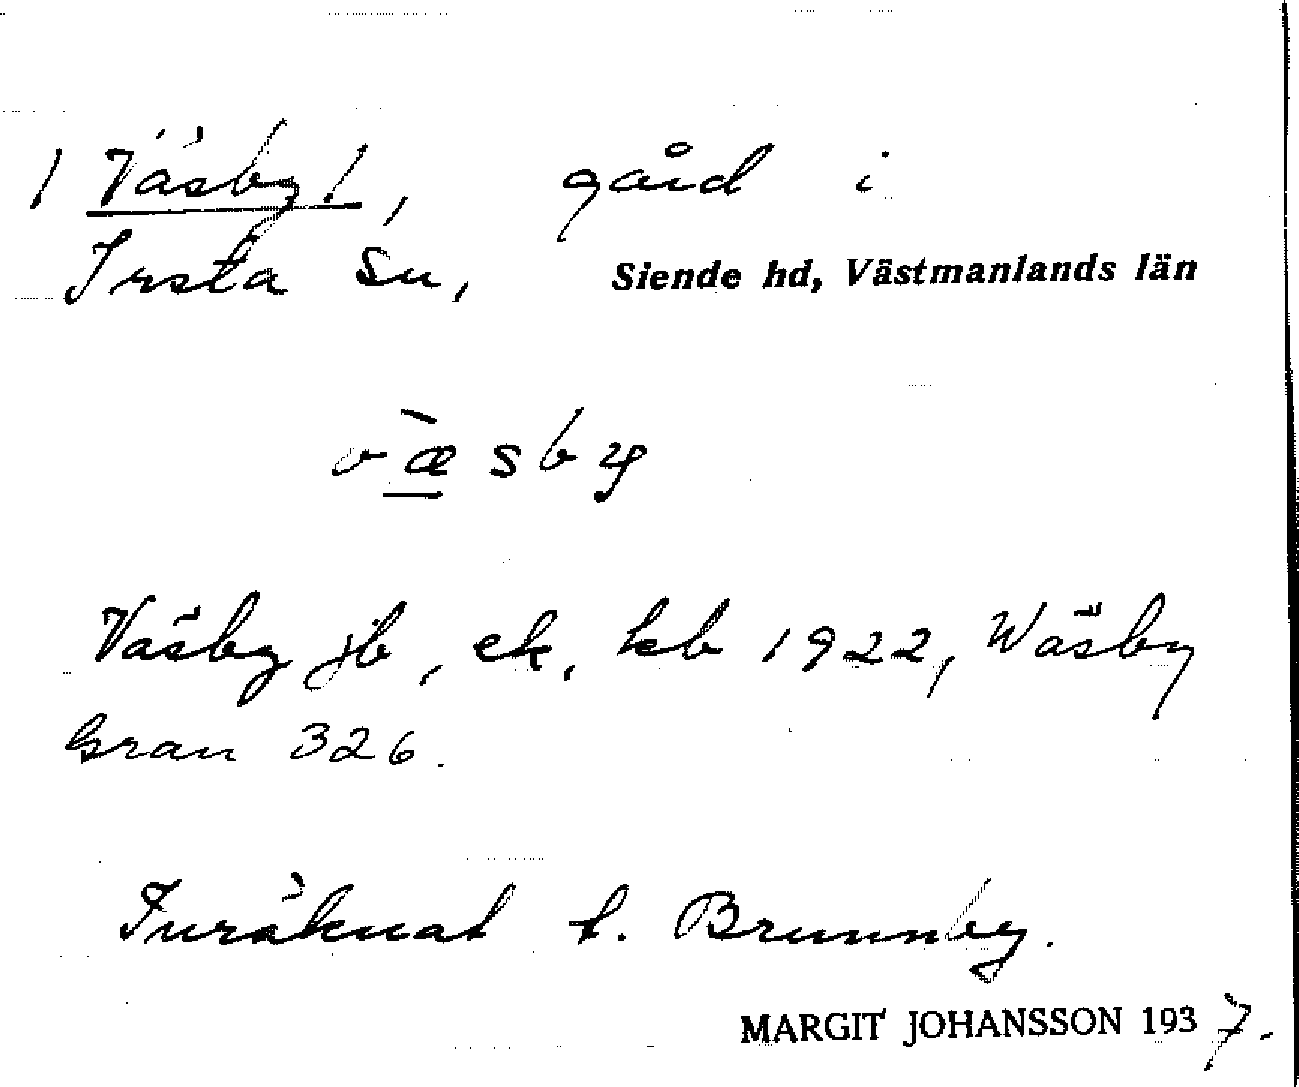 / Väsby /, gård i
Irsta sn, Siende hd, Västmanlands län
v æ̀ s b y
Väsby jb, ek, kb 1922, Wäsby
Gran 326.
Inräknat t. Brunnby.
MARGIT JOHANSSON 1937.